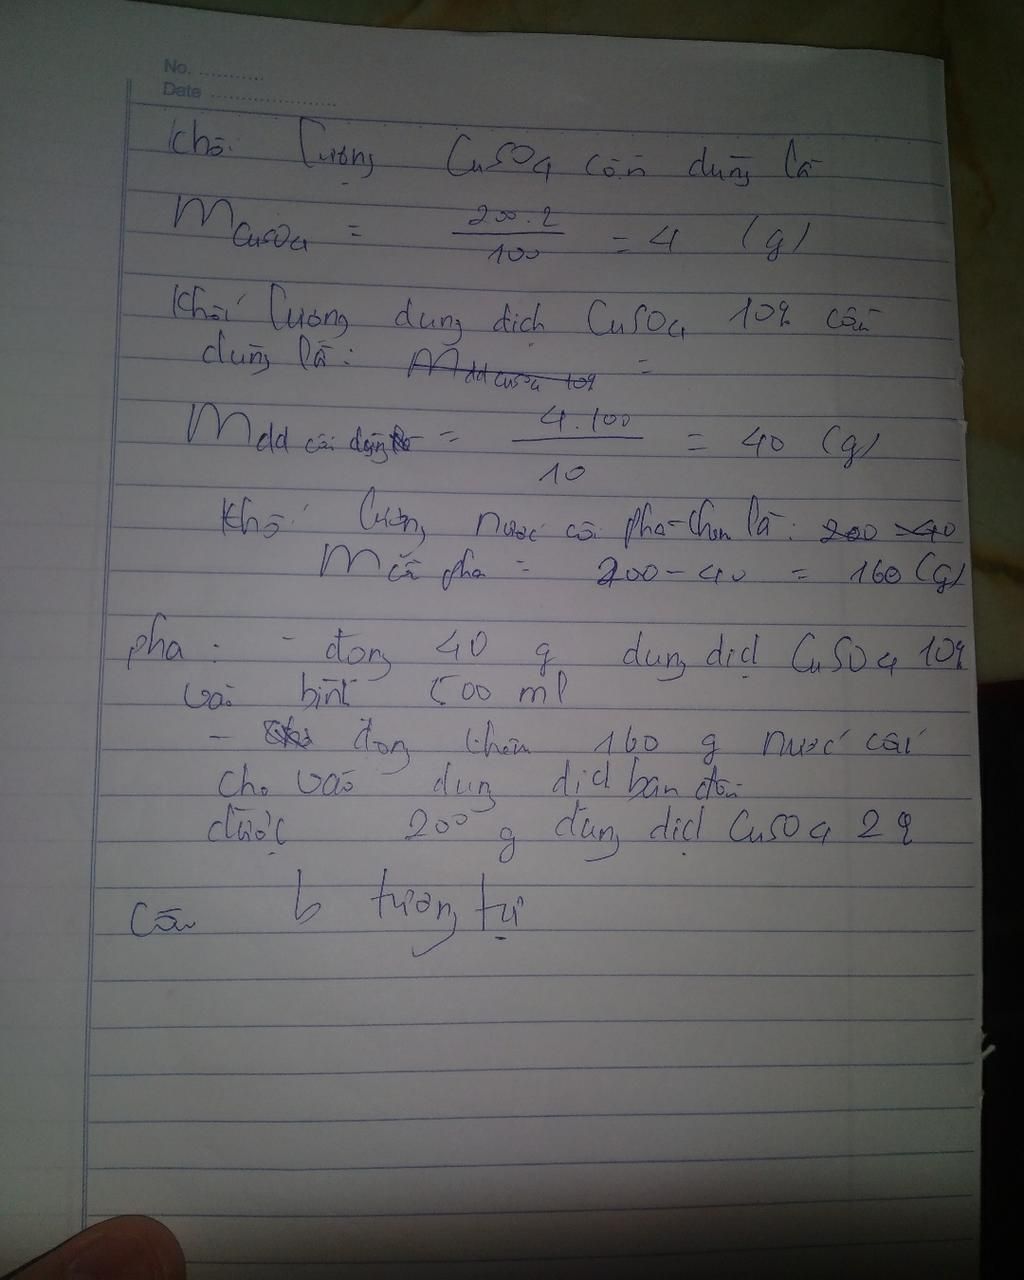 No. ............
Date ......................
Khối lượng CuSO4 cần dùng là
mCuSO4 = 200.2 / 100 = 4 (g)
Khối lượng dung dịch CuSO4 10% cần
dùng là: mdd CuSO4 10% =
mdd cần dùng = 4.100 / 10 = 40 (g)
Khối lượng nước cần pha chế là: 200 - 40
m cần pha = 200 - 40 = 160 (g)
pha : - đong 40 g dung dịch CuSO4 10%
vào bình 500 ml
- đong thêm 160 g nước cất
cho vào dung dịch ban đầu
được 200 g dung dịch CuSO4 2%
Câu b tương tự